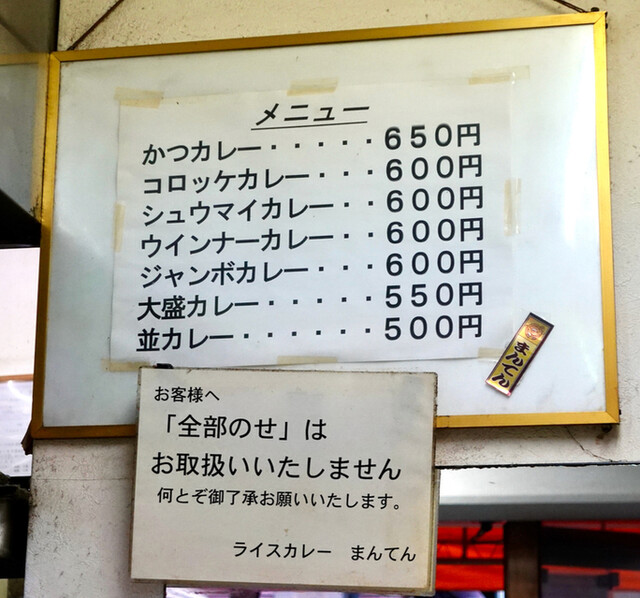 メニュー
かつカレー・・・・・650円
コロッケカレー・・・600円
シュウマイカレー・・600円
ウインナーカレー・・600円
ジャンボカレー・・・600円
大盛カレー・・・・・550円
並カレー・・・・・・500円
まんてん
お客様へ
「全部のせ」は
お取扱いいたしません
何とぞ御了承お願いいたします。
ライスカレー　まんてん